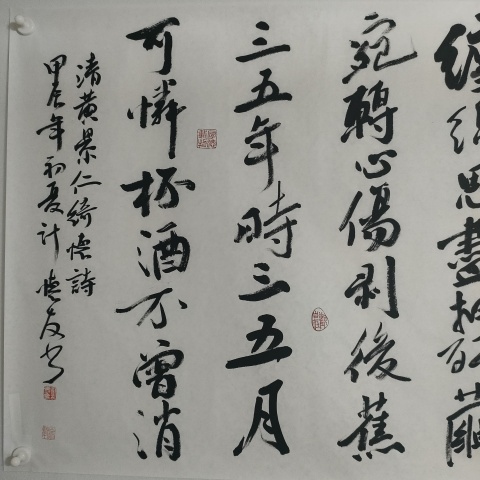 缠绵思盡抽残繭
宛轉心傷剥後蕉
三五年時三五月
可憐杯酒不曾消
清黄景仁綺懷詩
甲辰年初夏計友书